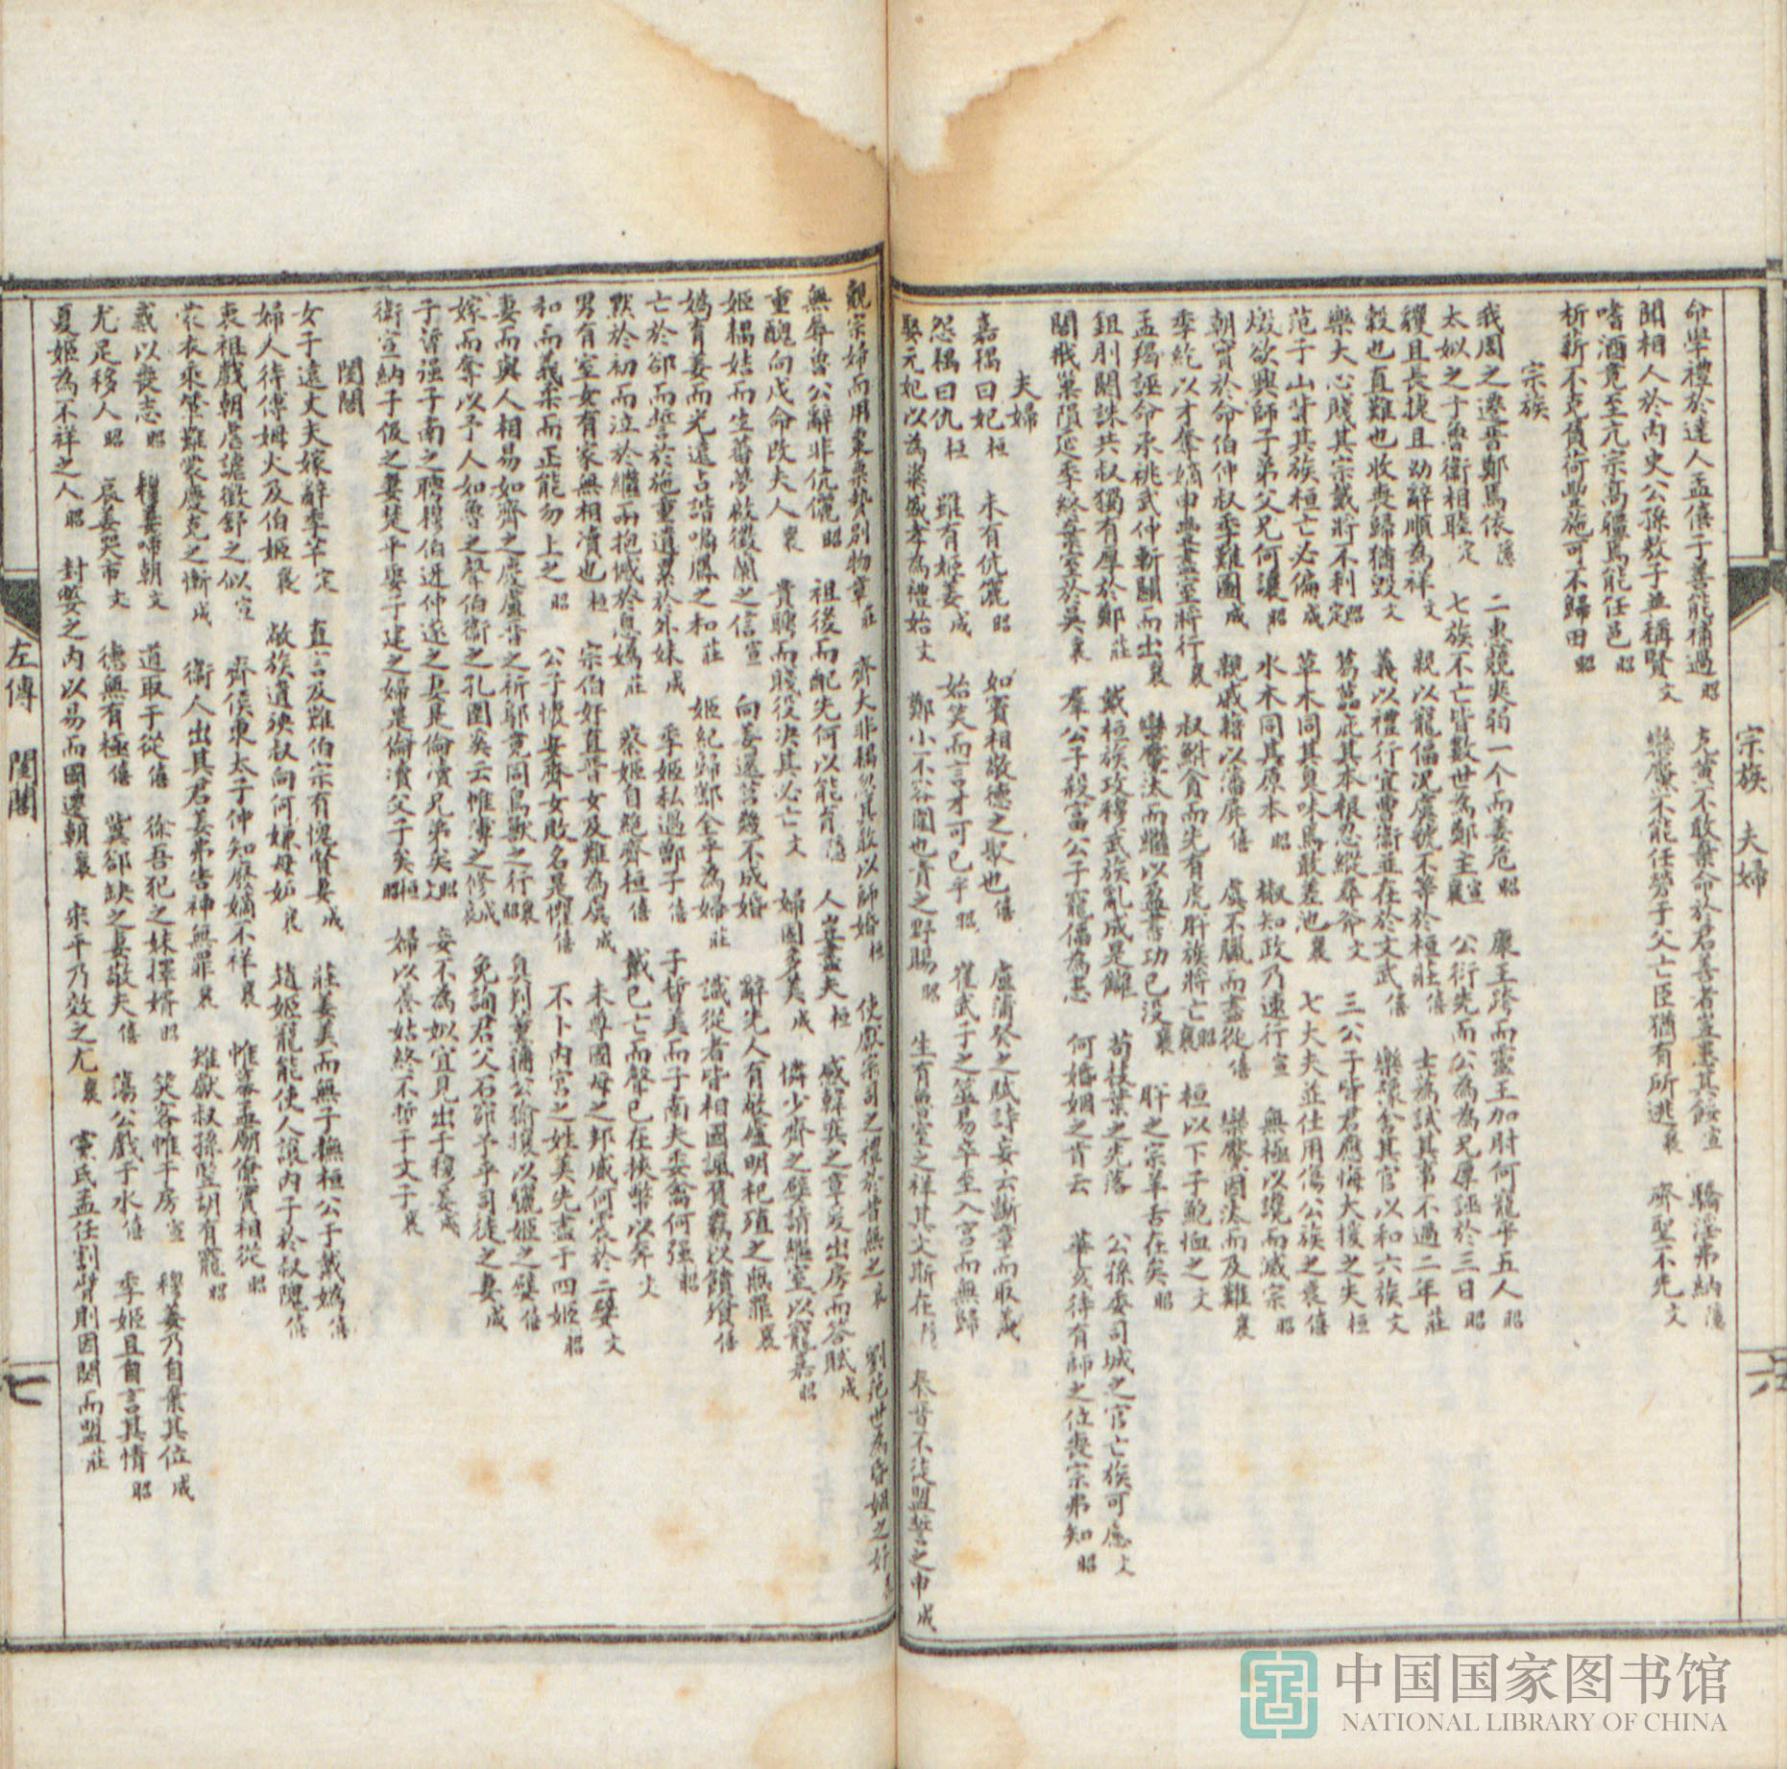 命學禮於達人孟僖子善能補過昭 克黃不敢棄命於君善者豈其餒宣 驕淫弗納隱
聞相人於內史公孫敖子並稱賢文 樂黶不能任勞子父亡臣猶有所逃襄 齊聖不先文
嗜酒竟至亢宗高彊焉能任邑昭
析薪不克負荷豐施可不歸田昭
宗族
我周之遷晉鄭焉依隱 二惠競爽弱一个而姜危昭 康王跨而靈王加肘何寵乎五人昭
太姒之子魯衛相睦定 七族不亡皆數世為鄭主襄 公衍先而公為為兄厚誣於三日昭
貜且長捷且幼辭順為祥文 親以寵偪況虞虢不等於桓莊僖 士蒍試其事不過二年莊
穀也直難也收喪歸猶毀文 義以禮行宜曹衛並在於文武僖 樂豫舍其官以和六族文
樂大心賤其宗戴將不利定 葛藟庇其本根忍縱尋斧文 三公子皆君應悔大援之失桓
范子山背其族桓亡必偏成 草木同其臭味焉敢差池襄 七大夫並仕用傷公族之衰僖
燬欲興師子弟父兄何讓 水木同其原本昭 椒知政乃速行宣 無極以讒而滅宗昭
朝實於命伯仲叔季難圖成 親戚籍以藩屏僖 虞不臘而盡從僖 欒黶因汰而及難襄
季紇以才奪嫡申豐盡室將行襄 叔鮒貪而先有虎 肸族將亡昭 桓以下子鮑恤之文
孟羯誣命承祧武仲斬關而出襄 欒黶汰而繼以盈書功已沒襄 肸之宗羊舌在矣昭
鉏刖閼誅共叔獨有厚於鄭莊 戴桓族攻穆武族亂成是讎 苟枝葉之先落 公孫委司城之官亡族可慮文
閽戕巢隕延季終棄室於吳襄 羣公子殺富公子寵偪為患 何婚姻之肯云 華亥待有師之位喪宗弗知昭
夫婦
嘉耦曰妃桓 未有伉儷昭 如賓相敬德之聚也僖 盧蒲癸之賦詩妾云斷章而取義
怨耦曰仇桓 雖有姬姜成 始笑而言才可已乎昭 崔武子之筮易卒至入宮而無歸
娶元妃以為粢盛孝為禮始文 鄭小不容閒也貴之野賜昭 生有當室之祥其文斯在 秦晉不從盟誓之申成
覿宗婦而用棗栗贄別物章莊 齊大非耦忽其敢以師婚桓 使厭宗司之禮於昔無之哀 劉范世為昏姻之好
無辱魯公辭非伉儷昭 祖後而配先何以能育隱 人豈盡夫桓 感韓奕之章爰出房而答賦成
重醜向戌命改夫人襄 貴聘而賤役決其必亡文 婦國多美成 憐少齊之嬖請繼室以寵嘉昭
姬耦姞而生蕃夢啟徵蘭之信宣 向姜還莒幾不成婚 辭先人有敝廬明杞殖之無罪襄
媯育姜而光遠占諧鳴鳳之和莊 姬紀歸酅全乎為婦莊 識從者皆相國諷負羈以饋飧僖
亡於郤而誓於施重遺累於外妹成 季姬私遇鄫子僖 子晳美而子南夫委禽何强昭
默於初而泣於繼而抱憾於息媯莊 蔡姬自絕齊桓僖 戴己亡而聲己在挾幣以奔文
男有室女有家無相瀆也桓 宗伯好直晉女及難為虞成 未尊國母之邦戚何褒於二嬖文
和而義柔而正能勿上之昭 公子懷安齊女敗名是懼僖 不卜內官之姓美先盡于四姬昭
妻而與人相易如齊之慶盧晉之祁鄔竟同鳥獸之行昭襄 真判薰蕕公偷援以驪姬之嬖僖
嫁而奪以予人如魯之聲伯衛之孔圉奚云帷薄之修哀成 免詢君父石窌予乎司徒之妻成
子晳强子南之聘穆伯逆仲遂之妻是倫瀆兄弟矣昭文 妾不為姒宜見出于穆姜成
衛宣納子伋之妻楚平娶子建之婦是倫瀆父子矣昭桓 婦以養姑終不哲于文子襄
閨閫
女子遠丈夫嫁辭季羋定 直言及難伯宗有愧賢妻成 莊姜美而無子撫桓公于戴媯隱
婦人待傅姆火及伯姬襄 敝族遺殃叔向何嫌母妬襄 趙姬寵能使人讓內子於叔隗僖
衷衵戲朝居謔徵舒之似宣 齊侯東太子仲知廢嫡不祥襄 帷幕盂廟僚賓相從昭
蒙衣乘輦難裳慶克之慚成 衛人出其君姜弗告神無罪襄 雉獻叔孫豎胡有寵昭
惑以喪志昭 穆姜啼朝文 道取于從僖 徐吾犯之妹擇婿昭 笑客帷于房宣 穆姜乃自棄其位成
尤足移人昭 哀姜哭市文 德無有極僖 冀郤缺之妻敬夫僖 蕩公戲于水僖 季姬且自言其情昭
夏姬為不祥之人昭 封嫳之內以易而國遷朝襄 宋平乃效之尤襄 黨氏孟任割臂則因閟而盟莊
宗族 夫婦
六
左傳 閨閫
七
中国国家图书馆
NATIONAL LIBRARY OF CHINA